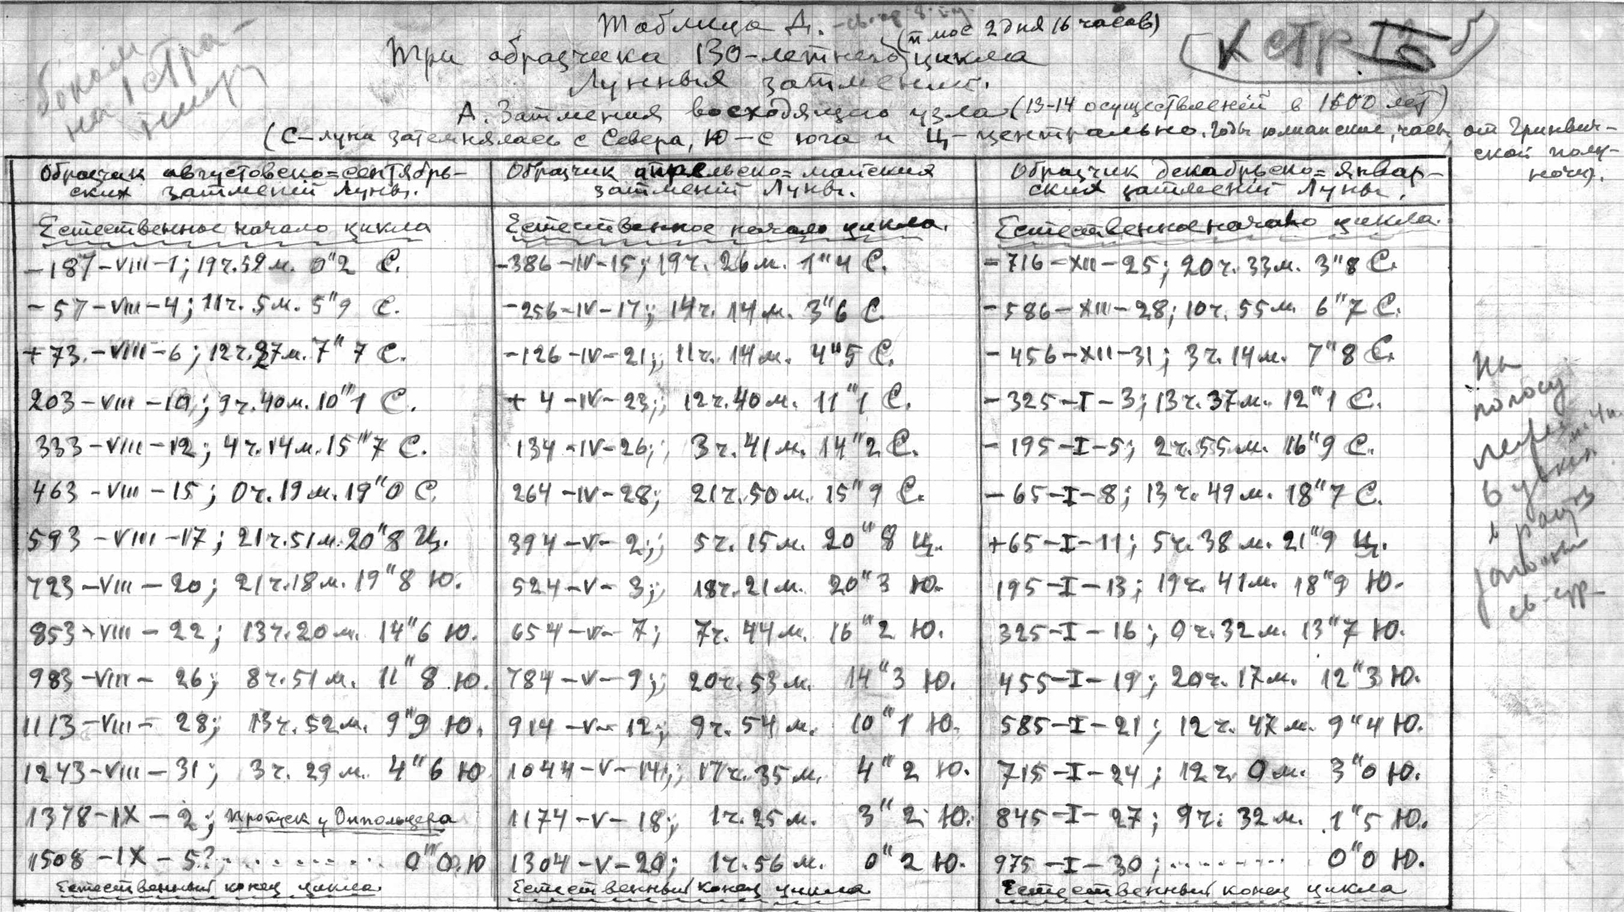 Таблица А.
(плюс 2 дня 16 часов)
Три образчика 130-летнего цикла
Лунныя затмений.
А. Затмения восходящего узла (13-14 осуществлений в 1600 лет)
(С-луна затемнялась с Севера, Ю-с юга и Ц-центрально. Годы юлианские, часы от Гринвич-
ской полу-
ночи).
К стр. 16 б
боком
на стра-
ницу
Образчик августовско=сентябрь-
ских затмений Луны.
Естественное начало цикла
-187-VIII-1; 19ч.52м. 0"2 С.
-57-VIII-4; 11ч.5м. 5"9 С.
+73.-VIII-6; 12ч.27м. 7"7 С.
203-VIII-10; 9ч.40м. 10"1 С.
333-VIII-12; 4ч.14м. 15"7 С.
463-VIII-15; 0ч.19м. 19"0 С.
593-VIII-17; 21ч.51м. 20"8 Ц.
723-VIII-20; 21ч.18м. 19"8 Ю.
853-VIII-22; 13ч.20м. 14"6 Ю.
983-VIII-26; 8ч.51м. 11"8 Ю.
1113-VIII-28; 13ч.52м. 9"9 Ю.
1243-VIII-31; 3ч.29м. 4"6 Ю
1378-IX-2; пропуск у Оппольцера
1508-IX-5?......... 0"0.Ю
Естественный конец цикла
Образчик апрельско=майския
затмений Луны.
Естественное начало цикла.
-386-IV-15; 19ч.26м. 1"4 С.
-256-IV-17; 14ч.14м. 3"6 С.
-126-IV-21; 11ч.14м. 4"5 С.
+4-IV-23; 12ч.40м. 11"1 С.
134-IV-26; 3ч.41м. 14"2 С.
264-IV-28; 21ч.50м. 15"9 С.
394-V-2; 5ч.15м. 20"8 Ц.
524-V-3; 18ч.21м. 20"3 Ю.
654-V-7; 7ч.44м. 16"2 Ю.
784-V-9; 20ч.53м. 14"3 Ю.
914-V-12; 9ч.54м. 10"1 Ю.
1044-V-14; 17ч.35м. 4"2 Ю.
1174-V-18; 1ч.25м. 3"2 Ю.
1304-V-20; 1ч.56м. 0"2 Ю.
Естественный конец цикла
Образчик декабрьско=январ-
ских затмений Луны.
Естественное начало цикла.
-716-XII-25; 20ч.33м. 3"8 С.
-586-XII-28; 10ч.55м. 6"7 С.
-456-XII-31; 3ч.14м. 7"8 С.
-325-I-3; 13ч.37м. 12"1 С.
-195-I-5; 2ч.55м. 16"9 С.
-65-I-8; 13ч.49м. 18"7 С.
+65-I-11; 5ч.38м. 21"9 Ц.
195-I-13; 19ч.41м. 18"9 Ю.
325-I-16; 0ч.32м. 13"7 Ю.
455-I-19; 20ч.17м. 12"3 Ю.
585-I-21; 12ч.47м. 9"4 Ю.
715-I-24; 12ч.0м. 3"0 Ю.
845-I-27; 9ч.32м. 1"5 Ю.
975-I-30;........ 0"0 Ю.
Естественный конец цикла
На
полосу